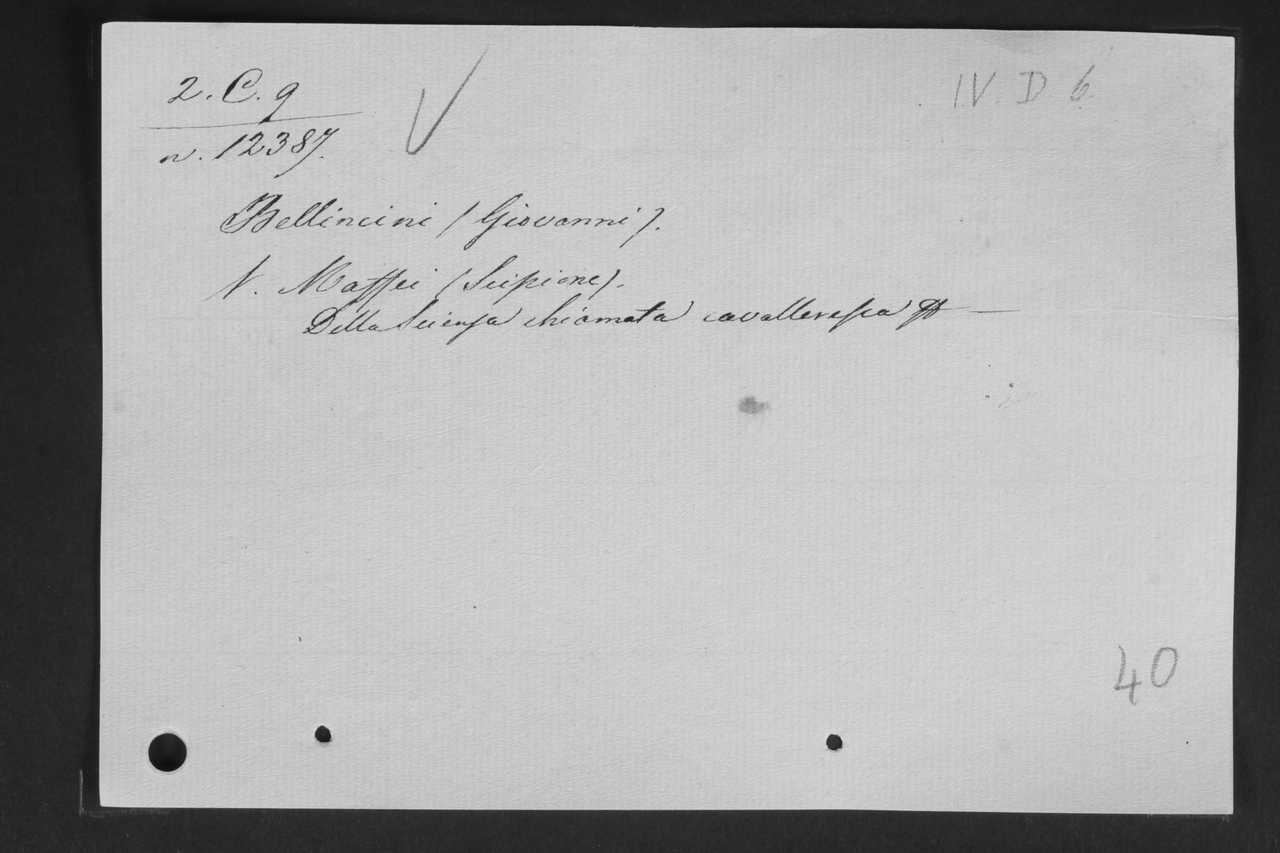 2. C. 9
IV. D. 6
n. 12387.
Bellincini (Giovanni).
V. Maffei (Scipione).
Della Scienza chiamata cavalleresca
40